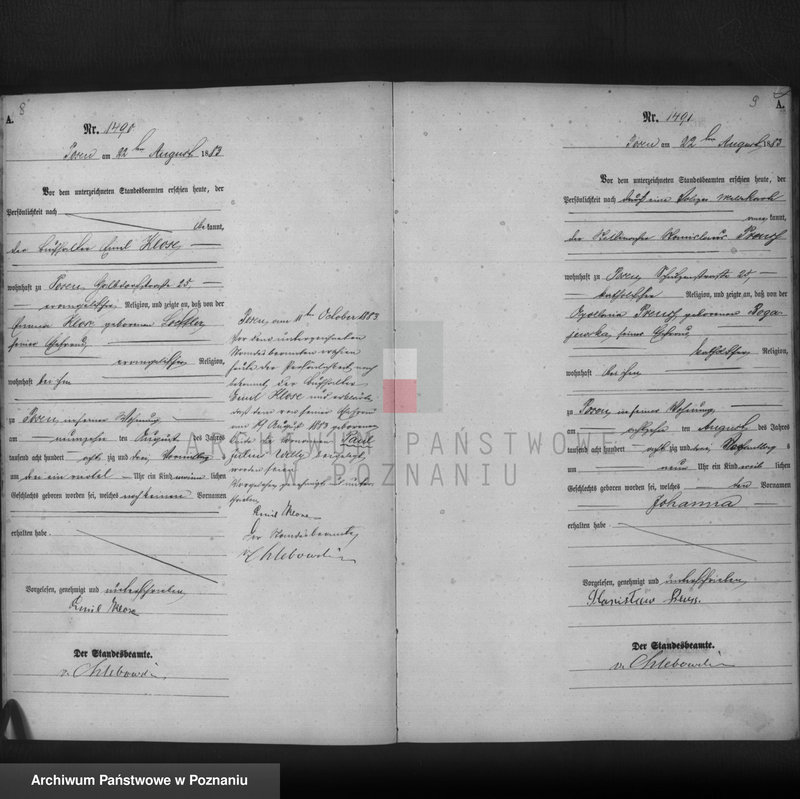 8
A.
Nr. 1490
Posen am 22ten August 1883
Vor dem unterzeichneten Standesbeamten erschien heute, der
Persönlichkeit nach
bekannt,
der Buchhalter Emil Klose
wohnhaft zu Posen, 25,
evangelischer Religion, und zeigte an, daß von der
Klose geborenen
seiner Ehefrau,
evangelischer Religion,
wohnhaft bei ihm
zu Posen in seiner Wohnung
am neunzehnten August des Jahres
tausend acht hundert achtzig und drei, Vormittag
um Uhr ein Kind männlichen
Geschlechts geboren worden sei, welches noch keinen Vornamen
erhalten habe.
Vorgelesen, genehmigt und unterschrieben
Emil Klose
Der Standesbeamte.
v. Chlebowski
Posen, am 11ten October 1883
Vor dem unterzeichneten
Standesbeamten erschien
heute der Persönlichkeit nach
bekannt, der Buchhalter
Emil Klose und erklärte,
daß dem von seiner Ehefrau
am 19 August 1883 geborenen
Kinde die Vornamen Paul
Julius Willy beigelegt
worden seien.
Vorgelesen, genehmigt und unter-
schrieben
Emil Klose
Der Standesbeamte,
v. Chlebowski
ARCHIWUM PAŃSTWOWE
W POZNANIU
A.
Nr. 1491
Posen am 22ten August 1883
Vor dem unterzeichneten Standesbeamten erschien heute, der
Persönlichkeit nach durch eine
kannt,
der Stanislaus
wohnhaft zu Posen, Schützenstraße 25,
katholischer Religion, und zeigte an, daß von der
Apolonia geborenen
seiner Ehefrau
katholischer Religion,
wohnhaft bei ihm
zu Posen in seiner Wohnung,
am achtzehnten August des Jahres
tausend acht hundert achtzig und drei,
um neun Uhr ein Kind weiblichen
Geschlechts geboren worden sei, welches den Vornamen
Johanna
erhalten habe
Vorgelesen, genehmigt und unterschrieben,
Stanisław
Der Standesbeamte.
v. Chlebowski
Archiwum Państwowe w Poznaniu